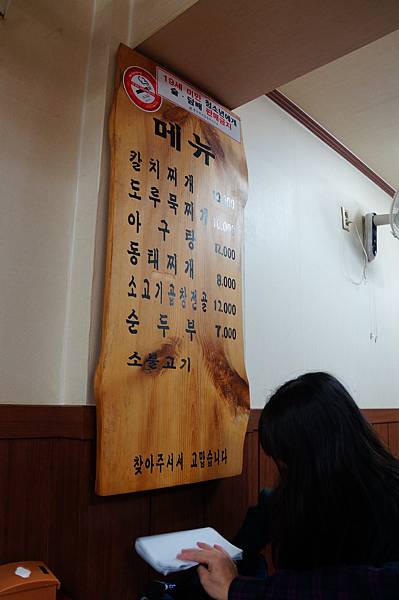 19세 미만 청소년에게
술·담배 판매금지
메뉴
갈치찌개
도루묵찌개 10,000
아구탕 12,000
동태찌개 8,000
소고기곱창전골 12,000
순두부 7,000
소불고기
찾아주셔서 고맙습니다